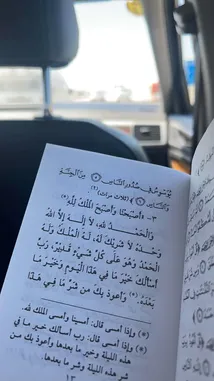 يُوَسْوِسُ فِي صُدُورِ النَّاسِ ۝ مِنَ الْجِنَّةِ
وَالنَّاسِ ۝﴾ (ثلاث مرات)(١).
٣- أَصْبَحْنَا وَأَصْبَحَ الْمُلْكُ لِلَّهِ(*)
وَالْحَمْدُ للهِ، لَا إِلَهَ إِلَّا اللهُ
وَحْدَهُ لَا شَرِيكَ لَهُ، لَهُ الْمُلْكُ وَلَهُ
الْحَمْدُ وَهُوَ عَلَى كُلِّ شَيْءٍ قَدِيرٌ، رَبِّ
أَسْأَلُكَ خَيْرَ مَا فِي هَذَا الْيَوْمِ وَخَيْرَ مَا
بَعْدَهُ(*)، وَأَعُوذُ بِكَ مِنْ شَرِّ مَا فِي هَذَا
(*) وإذا أمسى قال: أمسينا وأمسى الملك لله.
(*) وإذا أمسى قال: رب أسألك خير ما في
هذه الليلة وخير ما بعدها وأعوذ بك من
شر ما في هذه الليلة وشر ما بعدها.
١٣